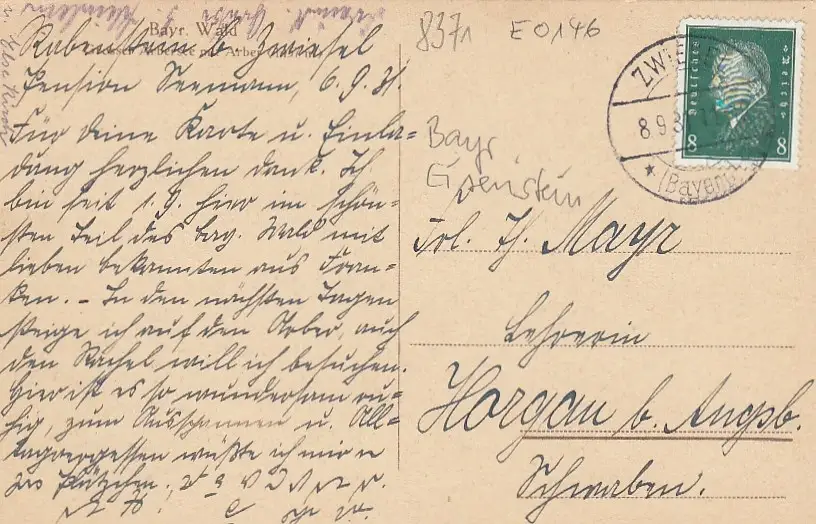 Bayr. Wald
Rabenstein b. Zwiesel
Pension Seemann, 6.9.31.
Für deine Karte u. Einla-
dung herzlichen Dank. Ich
bin seit 1.9. hier im schön-
sten Teil des bay. Wald mit
lieben Bekannten aus Fran-
ken. – In den nächsten Tagen
steige ich auf den Arber, auch
den Rachel will ich besuchen.
Hier ist es so wundersam ru-
hig, zum Ausspannen u. All-
tagvergessen wüßte ich
Plätzchen.
8371
E0146
Bayr
Eisenstein
ZWIESEL
8.9.3
(Bayern)
Deutsches Reich
8 8
Frl. Th. Mayr
Lehrerin
Horgau b. Augsb.
Schwaben.